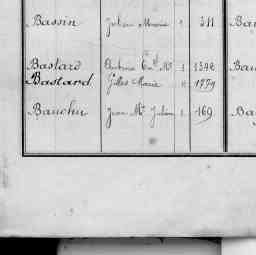 Bassin Julien Marie 1 311 Bau
Bastard 1 1342 Bau
Bastard Gilles Marie " 1779
Bauchu Jean Mie Julien 1 169 Bau